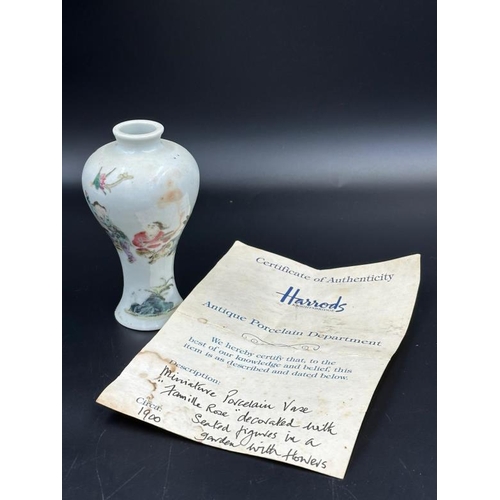 Certificate of Authenticity
Harrods
Antique Porcelain Department
We hereby certify that, to the
best of our knowledge and belief, this
item is as described and dated below.
Description:
Miniature Porcelain Vase
"Famille Rose" decorated with
Seated figures in a
garden with flowers
Circa:
1900